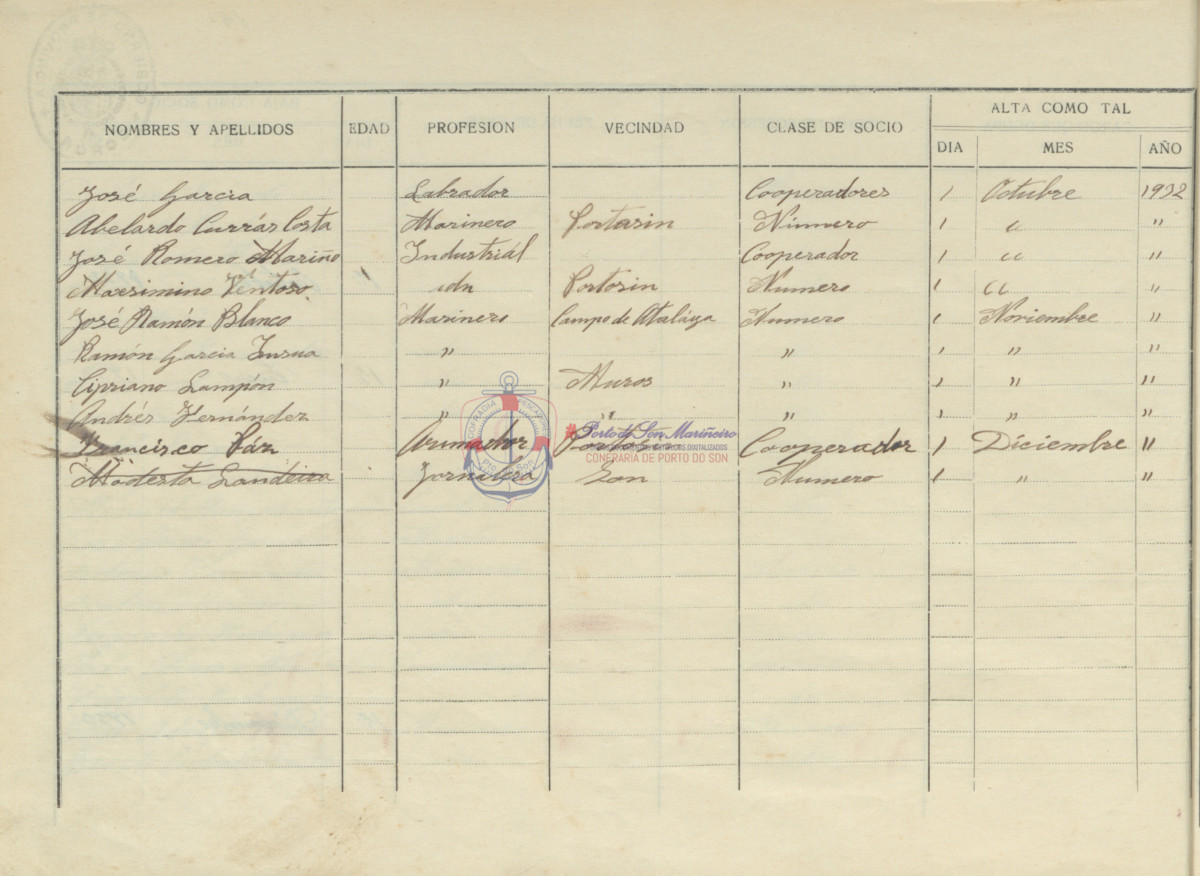 NOMBRES Y APELLIDOS EDAD PROFESION VECINDAD CLASE DE SOCIO ALTA COMO TAL
DIA MES AÑO
José Garcia Labrador Cooperadores 1 Octubre 1932
Abelardo Currás Costa Marinero Portosin Número 1 " "
José Romero Mariño Industriál Cooperador 1 " "
Maximino Ventoso idn Portosin Numero 1 " "
José Ramón Blanco Marinero Campo de Ataláya Numero 1 Noviembre "
Ramón Garcia Insua " " 1 " "
Cipriano Lampón " Muros " 1 " "
Andrés Hernández " " " 1 " "
Francisco Cooperador 1 Diciembre "
Modesta Landeira Jornalera Son Numero 1 " "
Porto do Son Mariñeiro
CONFRARÍA DE PORTO DO SON